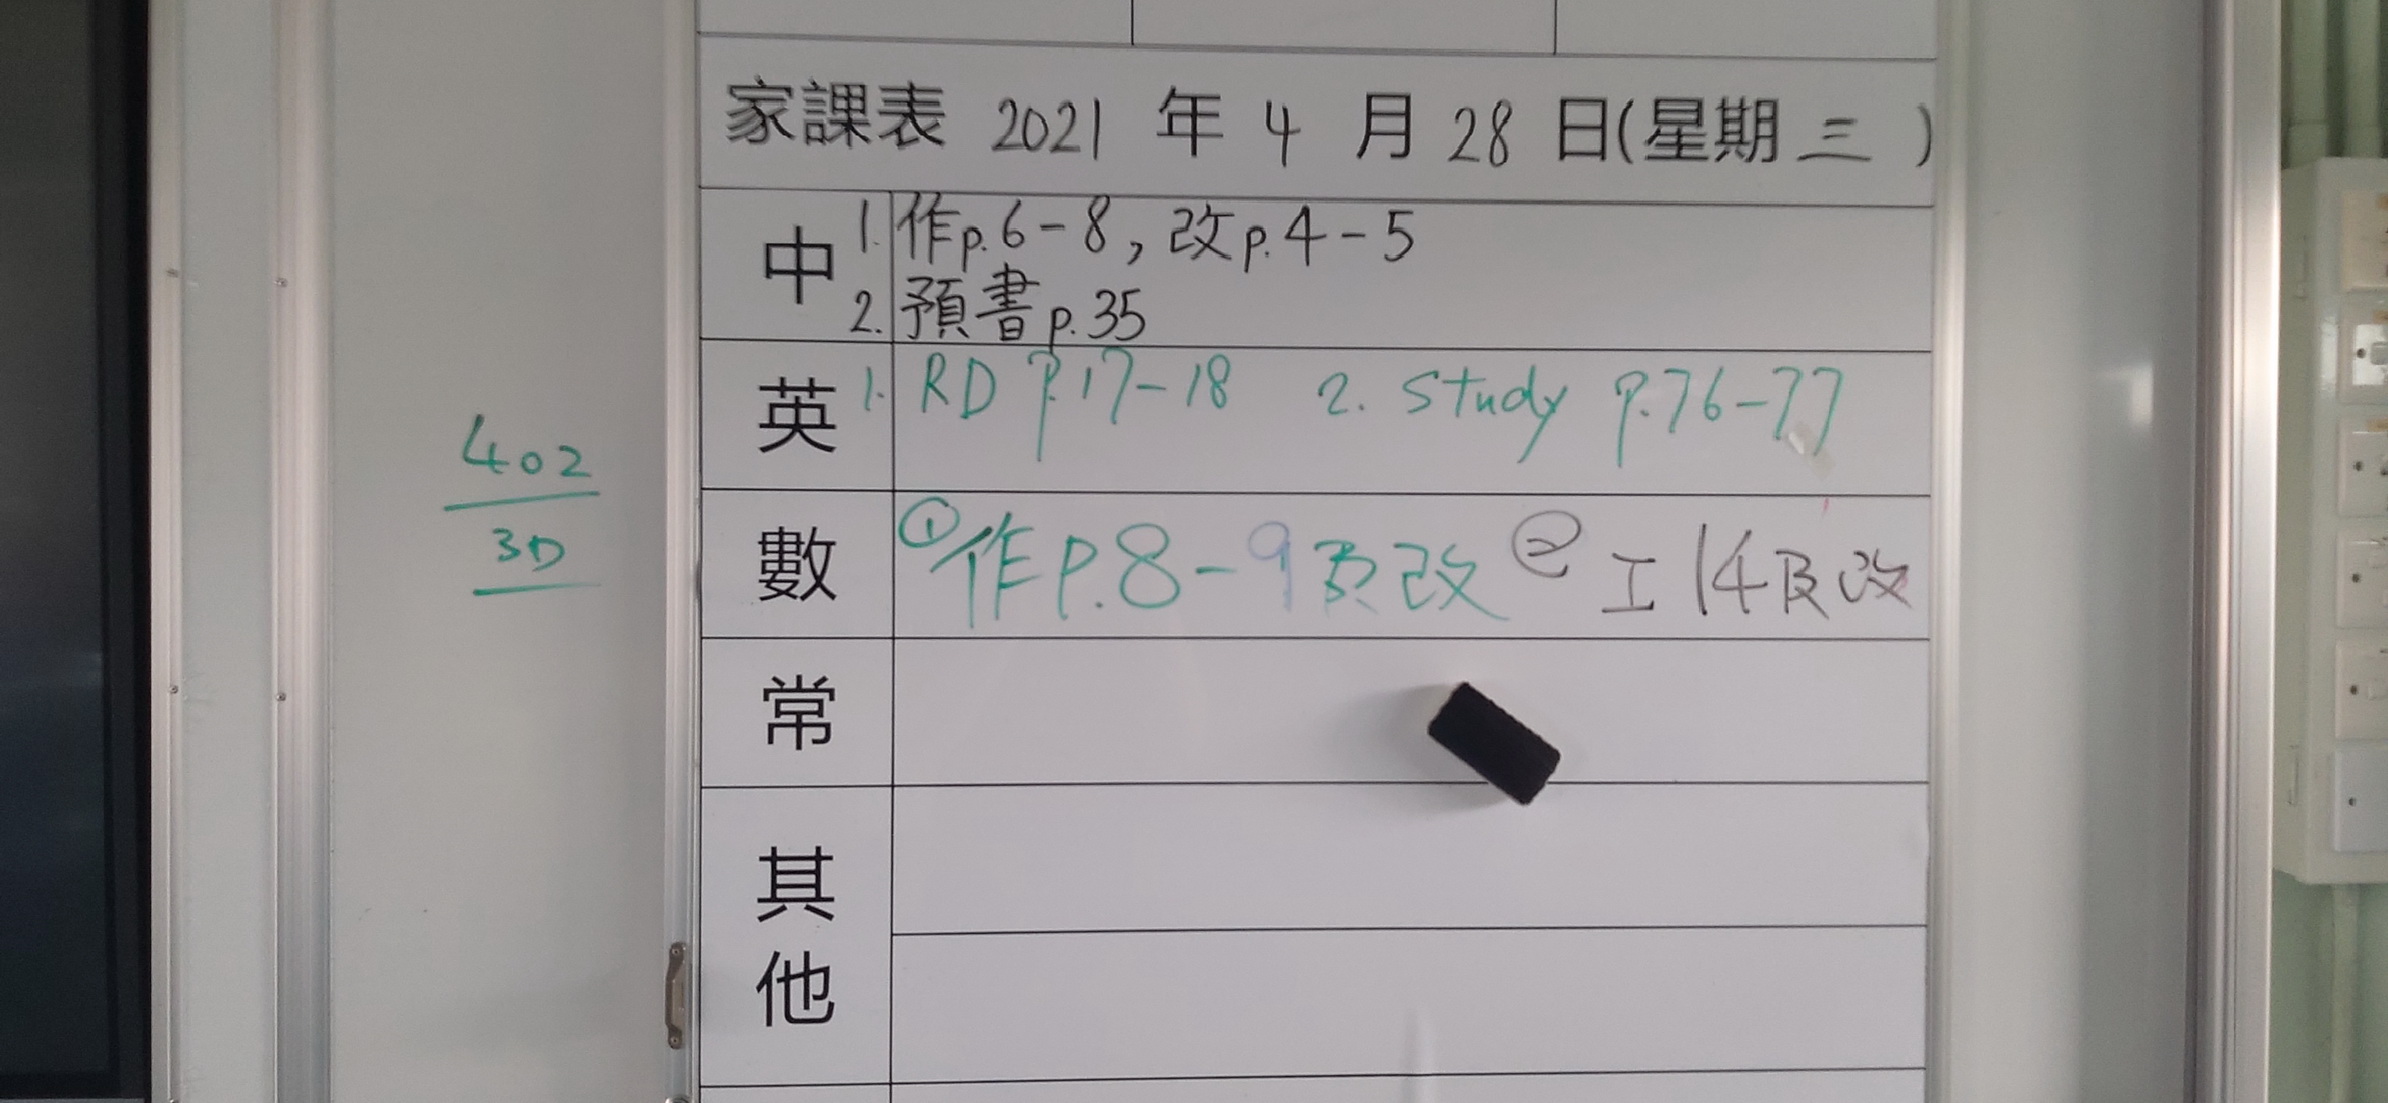 家課表 2021 年 4 月 28 日(星期 三 )
中
1. 作p.6-8, 改p.4-5
2. 預書p.35
英
1. RD p.17-18 2. Study p.76-77
數
① 作P.8-9及改 ② 工14及改
常
其他
402
3D